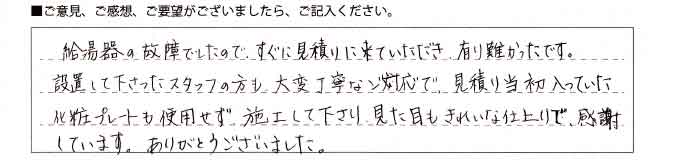 ■ご意見、ご感想、ご要望がございましたら、ご記入ください。
給湯器の故障でしたので、すぐに見積りに来ていただき、有り難かったです。
設置して下さったスタッフの方も、大変丁寧なご対応で、見積り当初入っていた
化粧プレートも使用せず、施工して下さり、見た目もきれいな仕上りで、感謝
しています。ありがとうございました。